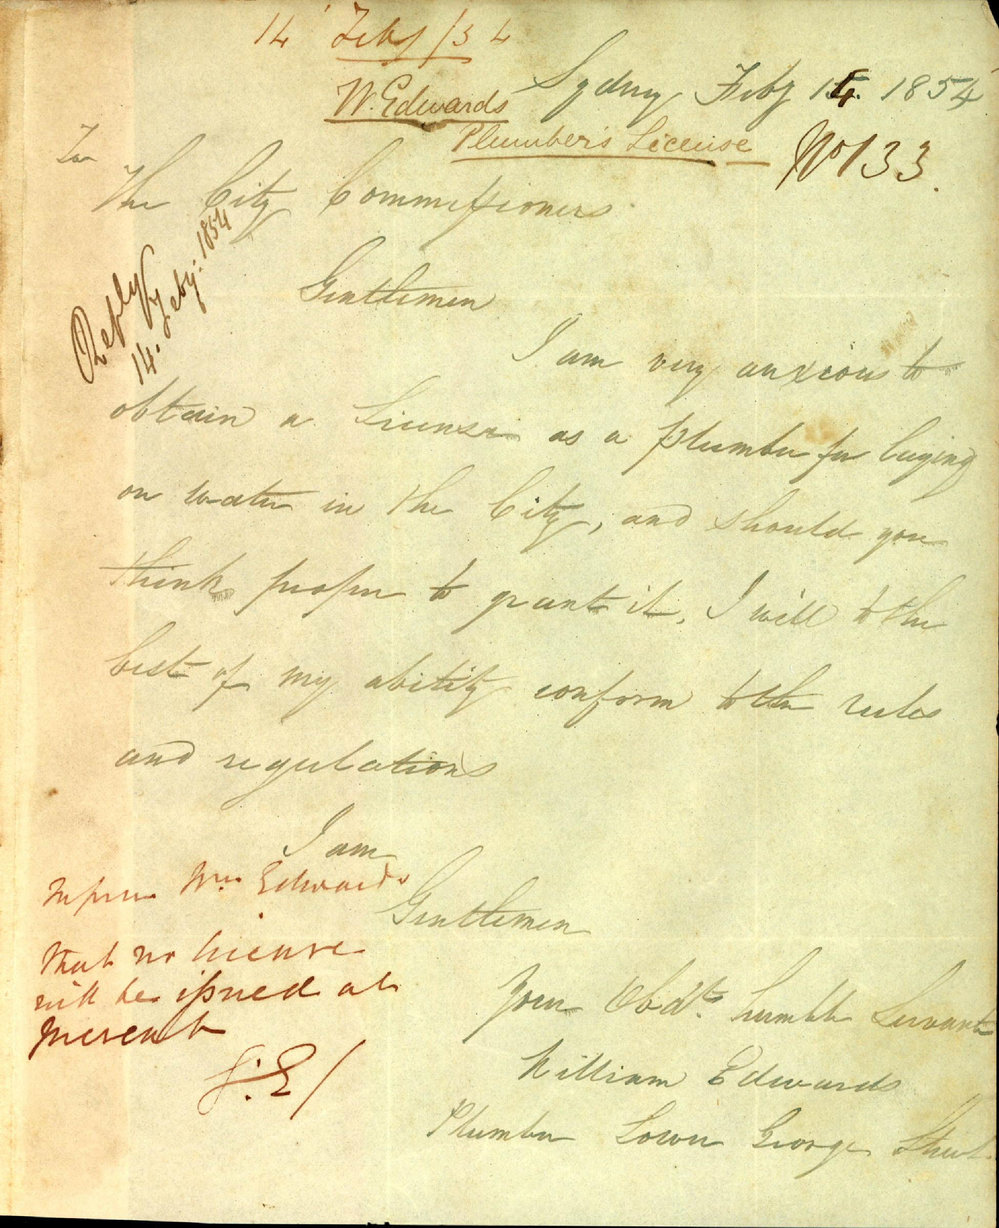 14 Feby /54
W. Edwards
Plumber's License
Sydney Feby 14. 1854
No 133.
To
The City Commissioners
Reply
14. Feby: 1854
Gentlemen
I am very anxious to
obtain a License as a Plumber for laying
on water in the City, and should you
think proper to grant it, I will to the
best of my ability conform to the rules
and regulations
I am
Gentlemen
Your Obdt. humble Servant
William Edwards
Plumber Lower George Street
Inform Wm Edwards
that no license
will be issued at
present